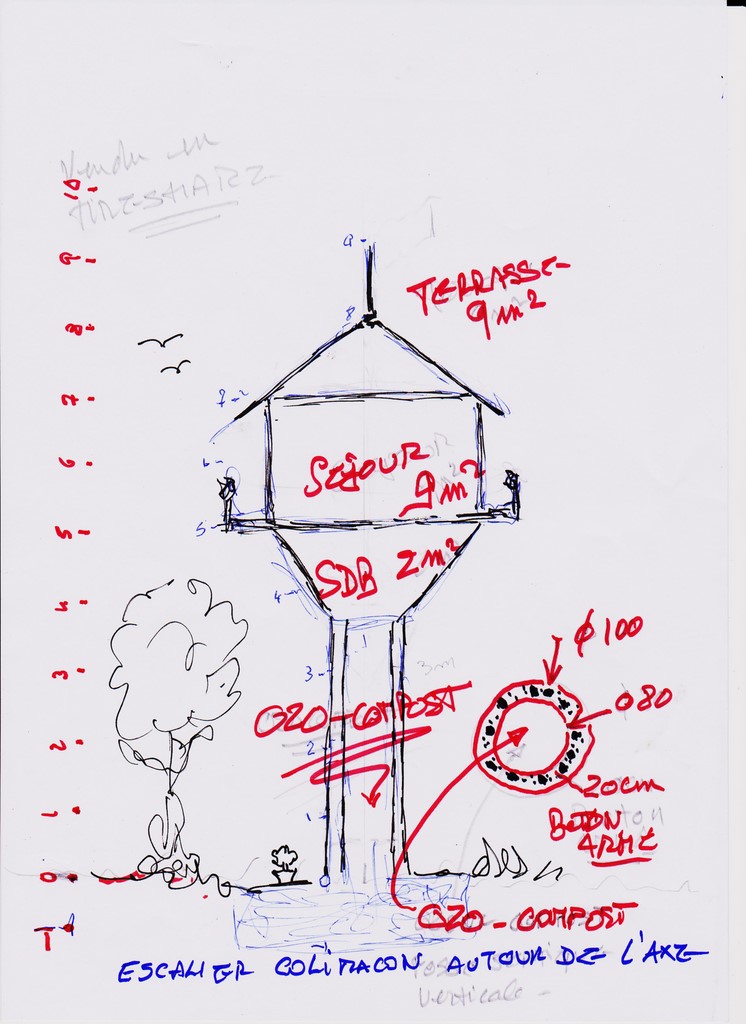 Vendu en
TIMESHARE
10
9
8
7
6
5
4
3
2
1
0
-1
9
8
7
6
5
4
3
2
1
0
TERRASSE
9 m²
SÉJOUR
9 m²
SDB 2 m²
3m
OZO-COMPOST
ϕ 100
ϕ 80
20cm
BETON
ARMÉ
OZO-COMPOST
ESCALIER COLIMACON AUTOUR DE L'AXE
verticale